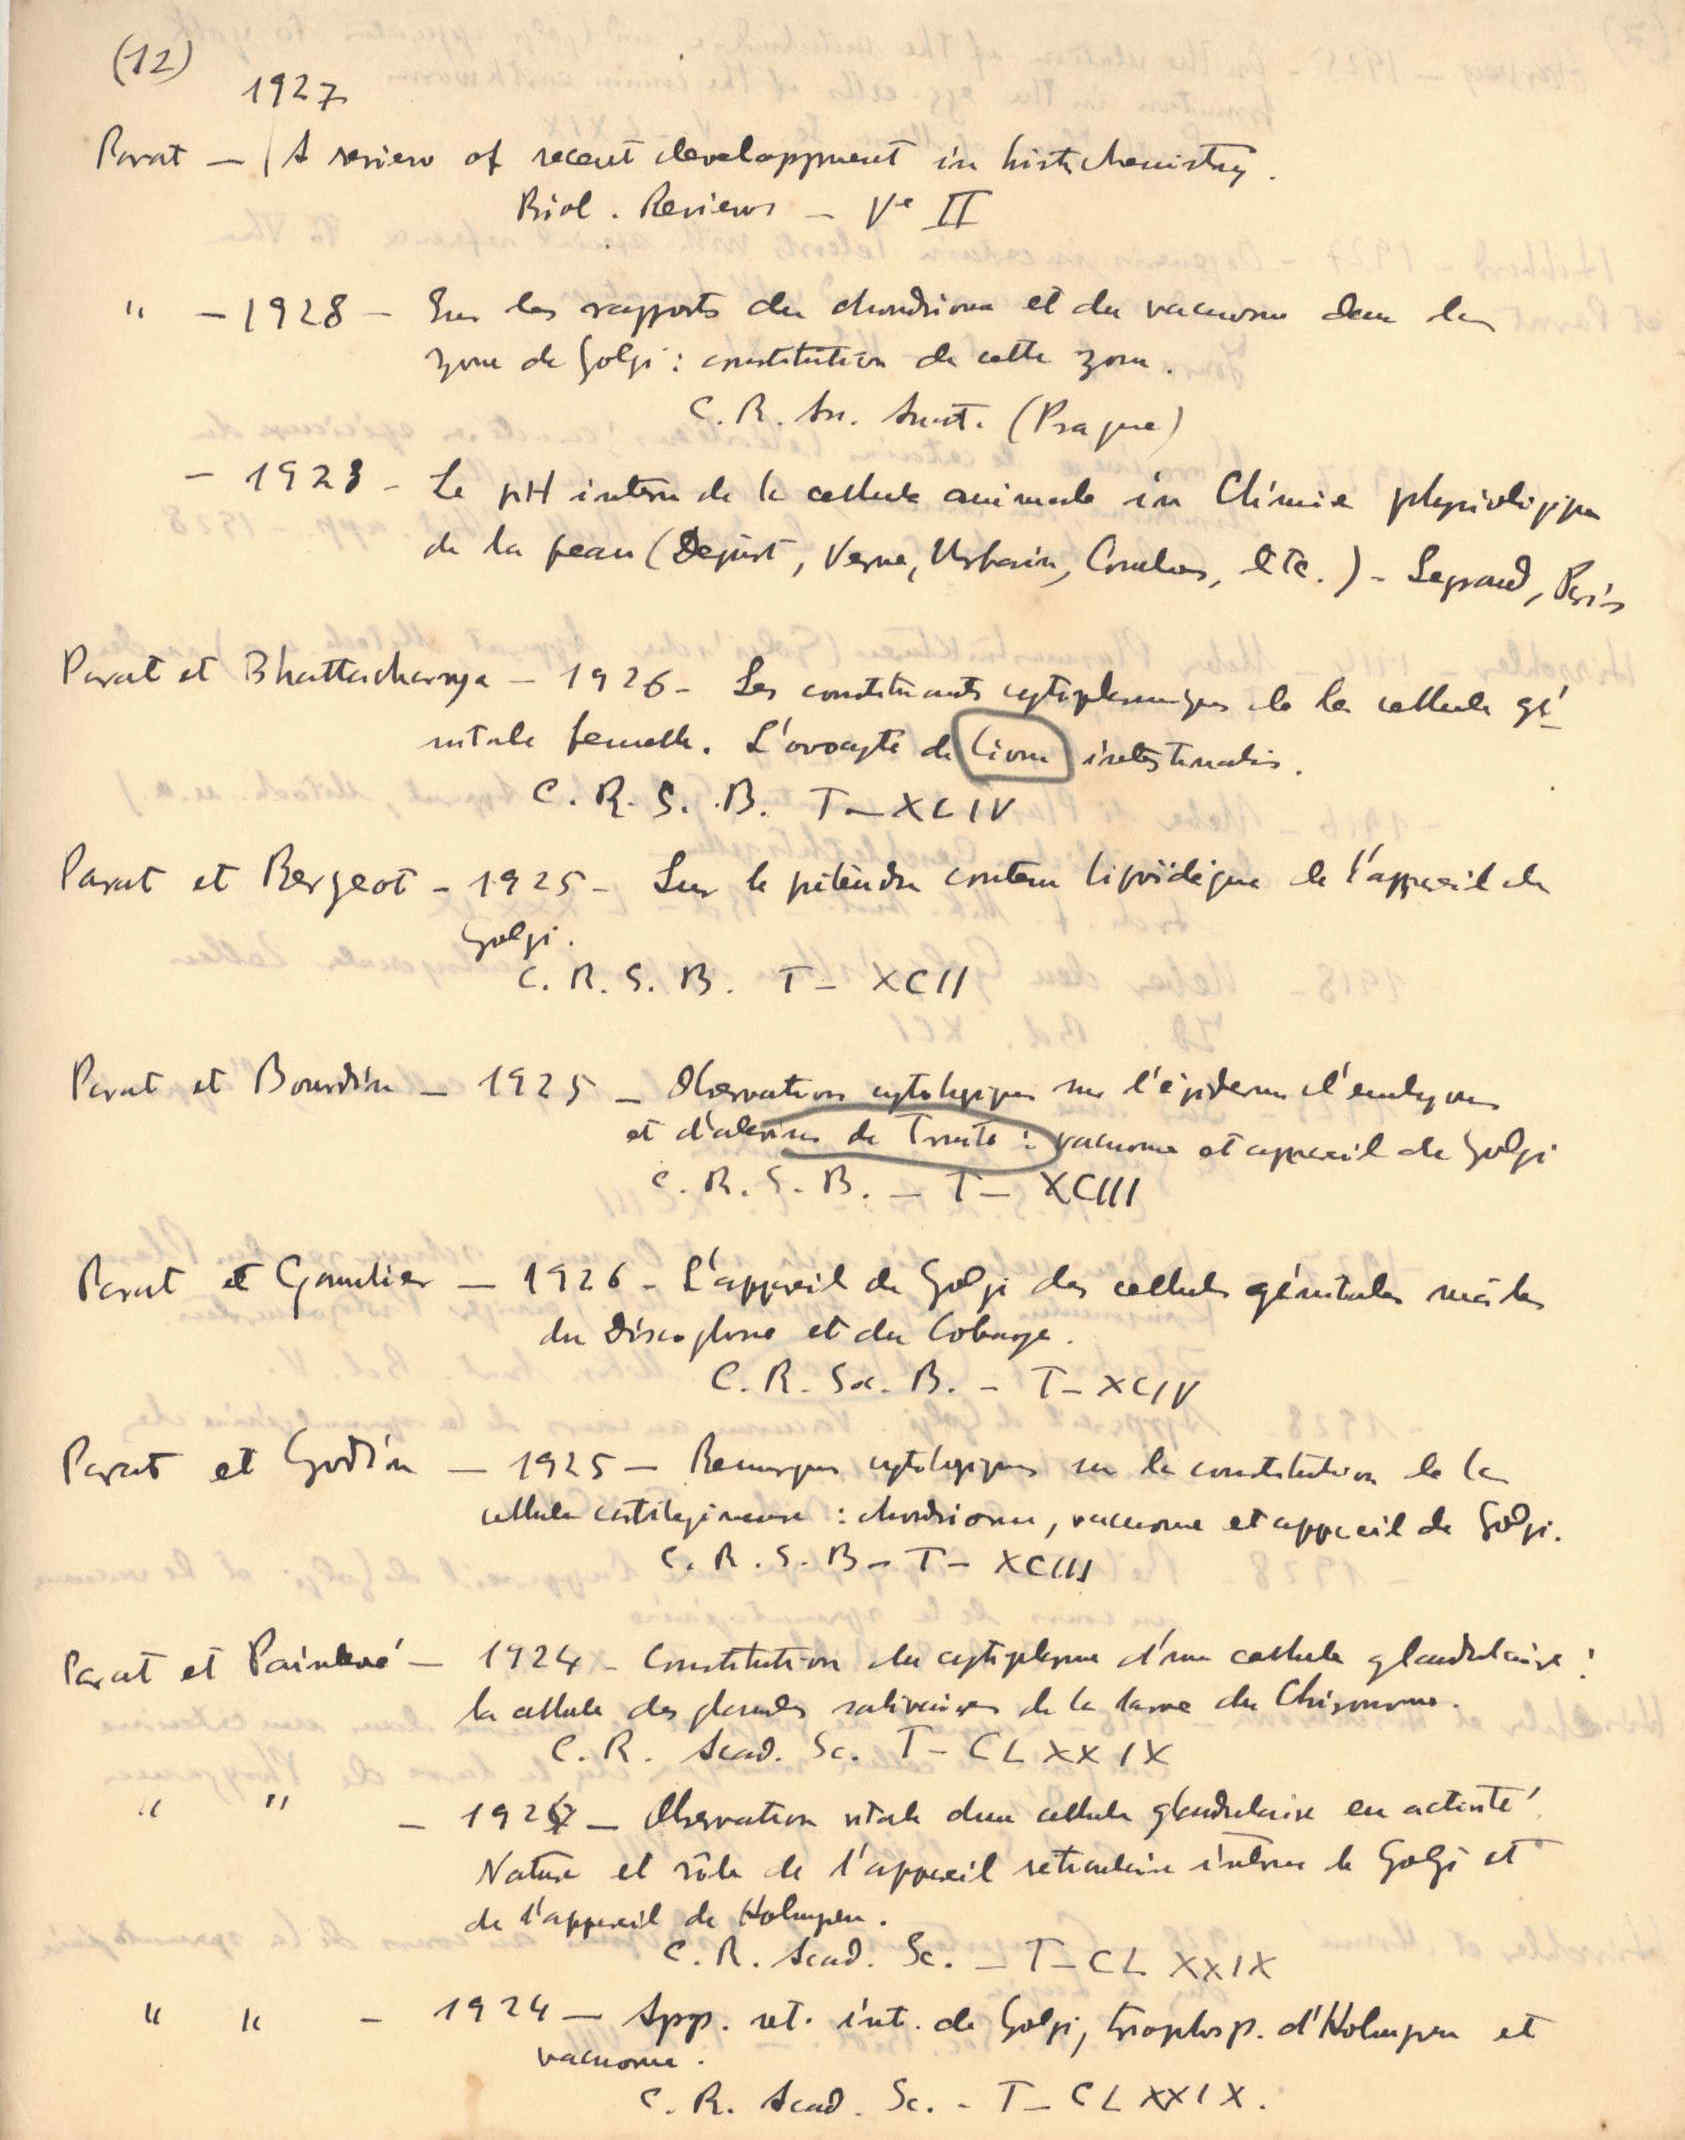 (12)
1927
Parat — / A review of recent developpment in histochemistry.
Biol. Reviews — Ve II
" — 1928 — Sur les rapports du chondriome et du vacuome dans la
zone de Golgi : constitution de cette zone.
C. R. An. Anat. (Prague)
— 1928 — Le pH interne de la cellule animale in Chimie physiologique
de la peau (Dejust, Verne, Urbain, Combes, etc.) — Legrand, Paris
Parat et Bhattacharya — 1926 — Les constituants cytoplasmiques de la cellule gé-
nitale femelle. L'ovocyte de Ciona intestinalis.
C. R. S. B. T — XLIV
Parat et Bergeot — 1925 — Sur le prétendu contenu lipoïdique de l'appareil de
Golgi.
C. R. S. B. T — XCII
Parat et Bourdin — 1925 — Observations cytologiques sur l'épiderme d'embryons
et d'alevins de Truite : vacuome et appareil de Golgi
C. R. S. B. — T — XCIII
Parat et Gautier — 1926 — L'appareil de Golgi des cellules génitales mâles
du Discoglosse et du Cobaye.
C. R. Soc. B. — T — XCIV
Parat et Godin — 1925 — Remarques cytologiques sur la constitution de la
cellule cartilagineuse : chondriome, vacuome et appareil de Golgi.
C. R. S. B — T — XCIII
Parat et Painlevé — 1924 — Constitution du cytoplasme d'une cellule glandulaire :
la cellule des glandes salivaires de la larve du Chironome.
C. R. Acad. Sc. T — CLXXIX
" " — 1924 — Observation vitale d'une cellule glandulaire en activité.
Nature et rôle de l'appareil réticulaire interne de Golgi et
de l'appareil de Holmgren.
C. R. Acad. Sc. — T — CLXXIX
" " — 1924 — App. ret. int. de Golgi, trophosp. d'Holmgren et
vacuome.
C. R. Acad. Sc. — T — CLXXIX.